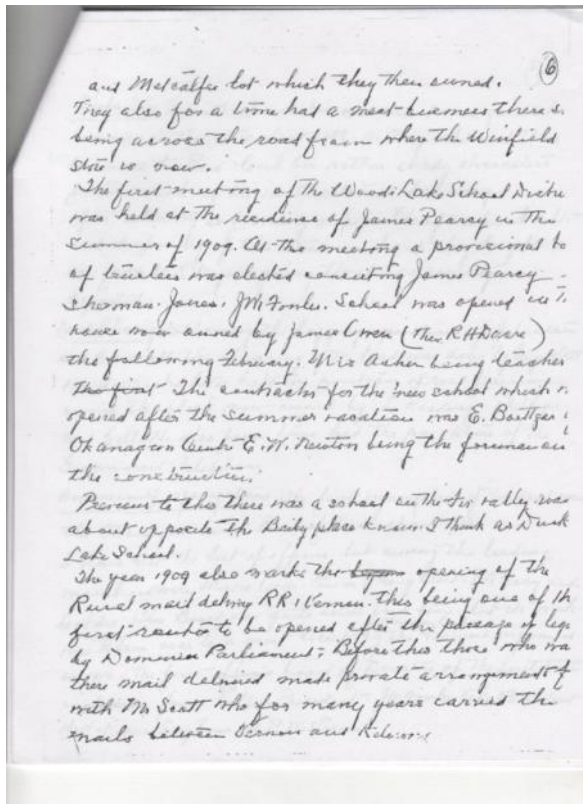 6
and Metcalfe lot which they then owned.
They also for a time had a meat business there
being across the road from where the Winfield
store is now.
The first meeting of the Woods Lake School
was held at the residence of James Pearcy in the
summer of 1909. At this meeting a provisional
of trustees was elected consisting James Pearcy
Sherman. Jones. J.W. Fowler. School was opened in
house now owned by James Owen (then R H
the following February. Miss Asher being teacher
the first The contractor for the new school which
opened after the summer vacation was E.
Okanagan Centre E. W. Newton being the foreman
the construction.
Previous to this there was a school on the valley
about opposite the Baily place known I think as Duck
Lake School.
The year 1909 also marks the opening of the
Rural mail delivery RR1 Vernon. this being one of
first routes to be opened after the passage of
by Dominion Parliament - Before this those who
there mail delivered made private arrangements
with Mr Scott who for many years carried the
mails between Vernon and Kelowna